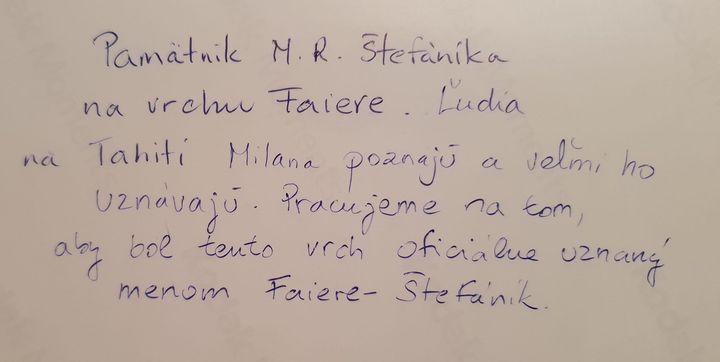 Pamätník M.R. Štefánika
na vrchu Faiere. Ľudia
na Tahiti Milana poznajú a veľmi ho
uznávajú. Pracujeme na tom,
aby bol tento vrch oficiálne uznaný
menom Faiere-Štefánik.